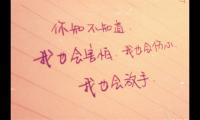 你知不知道
我也会害怕 我也会伤心
我也会放手